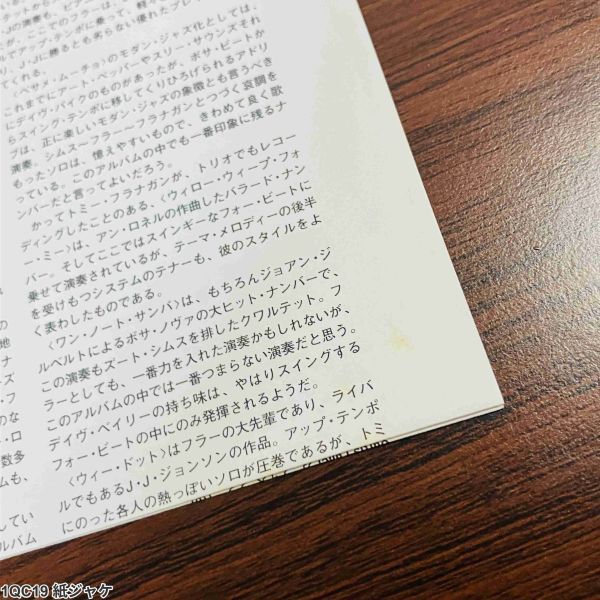 J・Jに勝るとも劣らない優れたプレイ
てくれる。
〈ベサメ・ムーチョ〉のモダン・ジャズ化としては、
これまでにアート・ペッパーやスリー・サウンズそれ
にデイヴ・パイクのものがあったが、ボサ・ビートか
らスイング・テンポに移してくりひろげられるアドリ
ブは、正に楽しいモダン・ジャズの象徴とも言うべき
演奏。シムスーフラーーフラナガンとつづく哀調を
もったソロは、憶えやすいもので、きわめて良く歌
っている。このアルバムの中でも一番印象に残るナ
ンバーだと言ってよいだろう。
かつてトミー・フラナガンが、トリオでもレコー
ディングしたことのある、〈ウィロー・ウィープ・フォ
ー・ミー〉は、アン・ロネルの作曲したバラード・ナン
バー。そしてここではスインギーなフォー・ビートに
乗せて演奏されているが、テーマ・メロディーの後半
を受けもつシステムのテナーも、彼のスタイルをよ
く表わしたものである。
〈ワン・ノート・サンバ〉は、もちろんジョアン・ジ
ルベルトによるボサ・ノヴァの大ヒット・ナンバーで、
この演奏もズート・シムスを排したクワルテット。フ
ラーとしても、一番力を入れた演奏かもしれないが、
このアルバムの中では一番つまらない演奏だと思う。
デイヴ・ベイリーの持ち味は、やはりスイングする
フォー・ビートの中にのみ発揮されるようだ。
〈ウィー・ドット〉はフラーの大先輩であり、ライバ
ルでもあるJ・J・ジョンソンの作品。アップ・テンポ
にのった各人の熱っぽいソロが圧巻であるが、トミ
の
地
ナ
ズ
・フ
のな
・ロ
数多
ムも、
してい
ルバム
1QC19 紙ジャケ